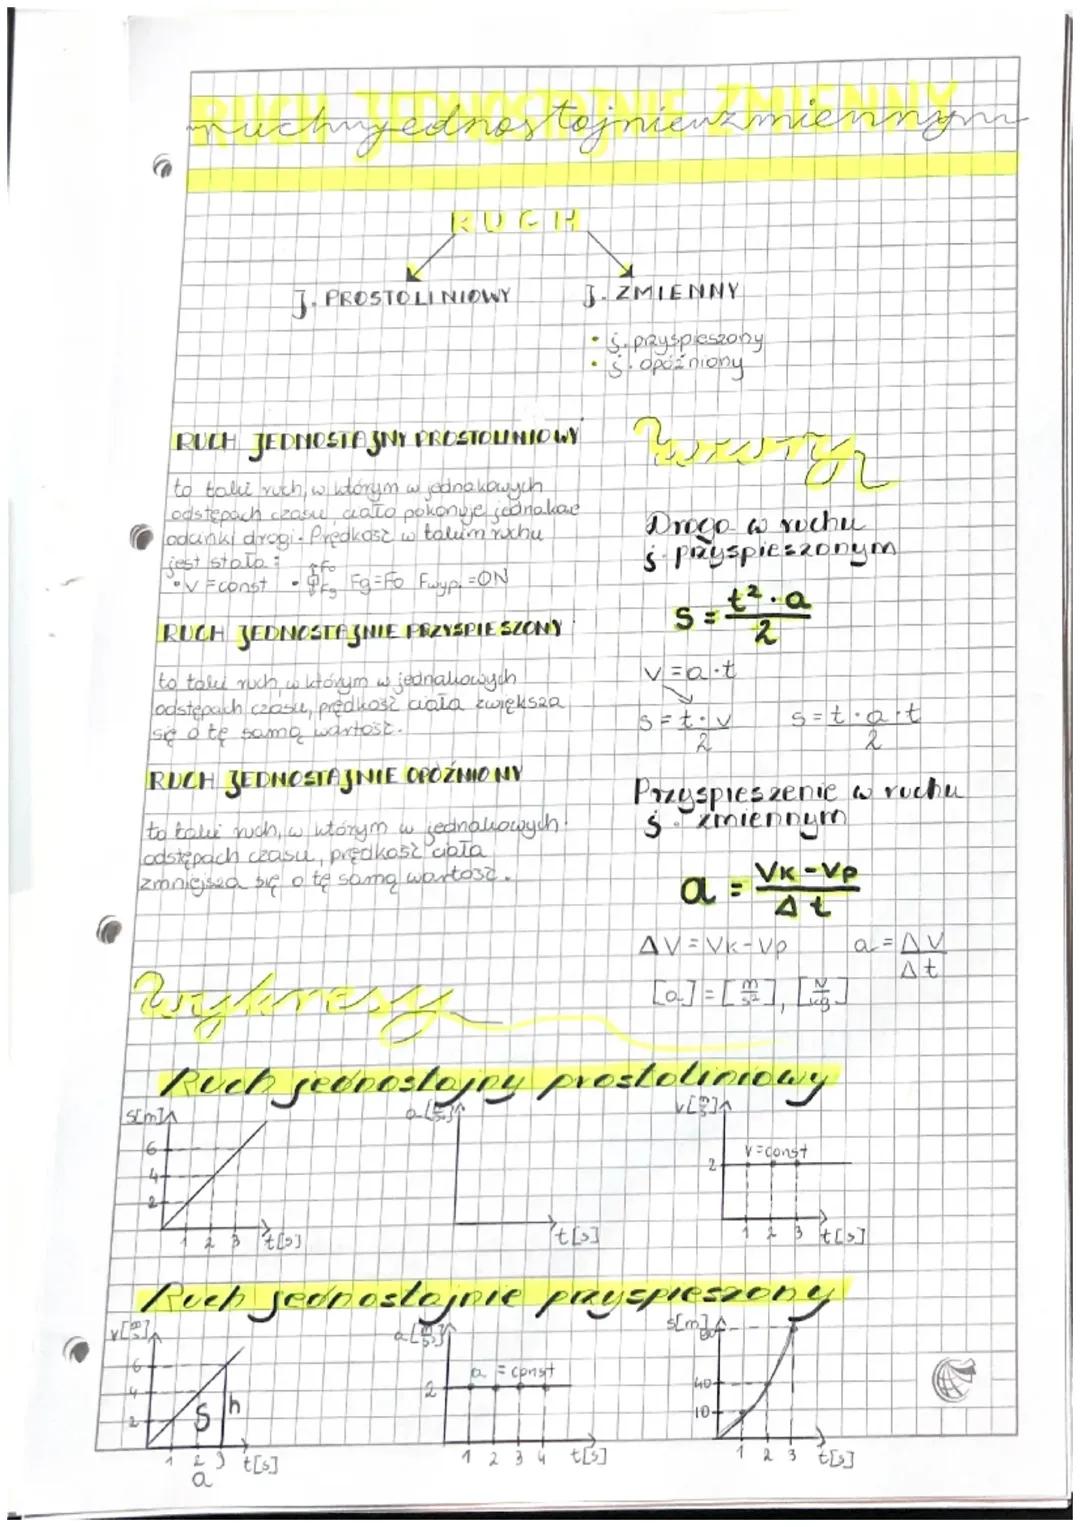 RUCH JEDNOSTAJNIE ZMIENNY
ruchyjednostajniezmiennym
RUCH
J. PROSTOLINIOWY
J. ZMIENNY
• j. przyspieszony
• j. opóźniony
RUCH JEDNOSTAJNY PROSTOLINIOWY
to taki ruch, w którym w jednakowych
odstępach czasu ciało pokonuje jednakowe
odcinki drogi. Prędkość w takim ruchu
jest stała:
• V = const • Fo Fg Fg=Fo Fwyp. =0N
RUCH JEDNOSTAJNIE PRZYSPIESZONY
to taki ruch, w którym w jednakowych
odstępach czasu, prędkość ciała zwiększa
się o tę samą wartość.
RUCH JEDNOSTAJNIE OPÓŹNIONY
to taki ruch, w którym w jednakowych
odstępach czasu, prędkość ciała
zmniejsza się o tę samą wartość.
Wzory
Droga w ruchu
j. przyspieszonym
s = t² · a / 2
v = a · t
s = t · v / 2
s = t · a · t / 2
Przyspieszenie w ruchu
j. zmiennym
a = Vk - Vp / Δt
ΔV = Vk - Vp
a = ΔV / Δt
[a] = [m/s²], [N/kg]
Wykresy
Ruch jednostajny prostoliniowy
s[m]
6
4
2
1 2 3 t[s]
a[m/s²]
t[s]
v[m/s]
v = const
2
1 2 3 t[s]
Ruch jednostajnie przyspieszony
v[m/s]
6
4
2
S
h
1 2 3 t[s]
a
a[m/s²]
a = const
2
1 2 3 4 t[s]
s[m]
90
40
10
1 2 3 t[s]